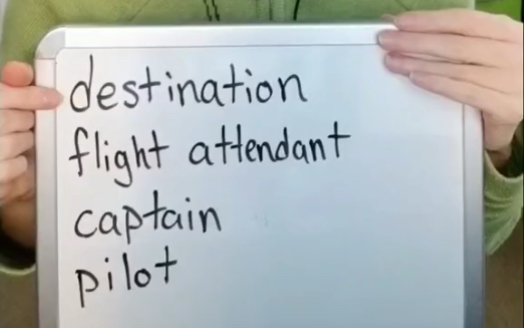 destination
flight attendant
captain
pilot